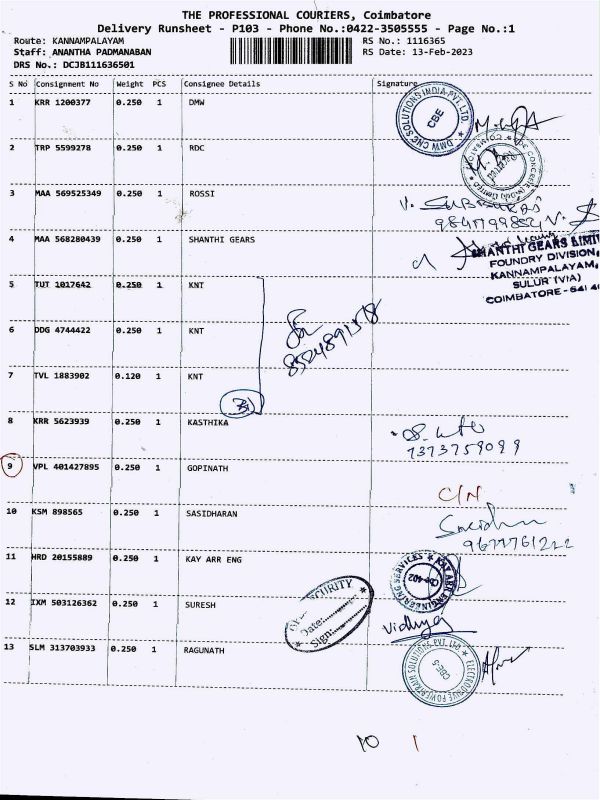 THE PROFESSIONAL COURIERS, Coimbatore
Delivery Runsheet - P103 - Phone No.:0422-3505555 - Page No.:1
Route: KANNAMPALAYAM RS No.: 1116365
Staff: ANANTHA PADMANABAN RS Date: 13-Feb-2023
DRS No.: DCJB111636501
S No Consignment No Weight PCS Consignee Details Signature
1 KRR 1200377 0.250 1 DMW
DMW CNC SOLUTIONS INDIA PVT. LTD. CBE
2 TRP 5599278 0.250 1 RDC
3 MAA 569525349 0.250 1 ROSSI
4 MAA 568280439 0.250 1 SHANTHI GEARS
SHANTHI GEARS LIMI
FOUNDRY DIVISION,
KANNAMPALAYAM,
SULUR (VIA)
COIMBATORE - 641 4
5 TUT 1017642 0.250 1 KNT
6 DDG 4744422 0.250 1 KNT
7 TVL 1883902 0.120 1 KNT
8 KRR 5623939 0.250 1 KASTHIKA
7373759099
9 VPL 401427895 0.250 1 GOPINATH
C/N
10 KSM 898565 0.250 1 SASIDHARAN
11 HRD 20155889 0.250 1 KAY ARR ENG
KAY ARR ENGINEERING SERVICES CBE-402
12 IXM 503126362 0.250 1 SURESH
SECURITY
Date:
Sign:
Vidhya
13 SLM 313703933 0.250 1 RAGUNATH
10 1